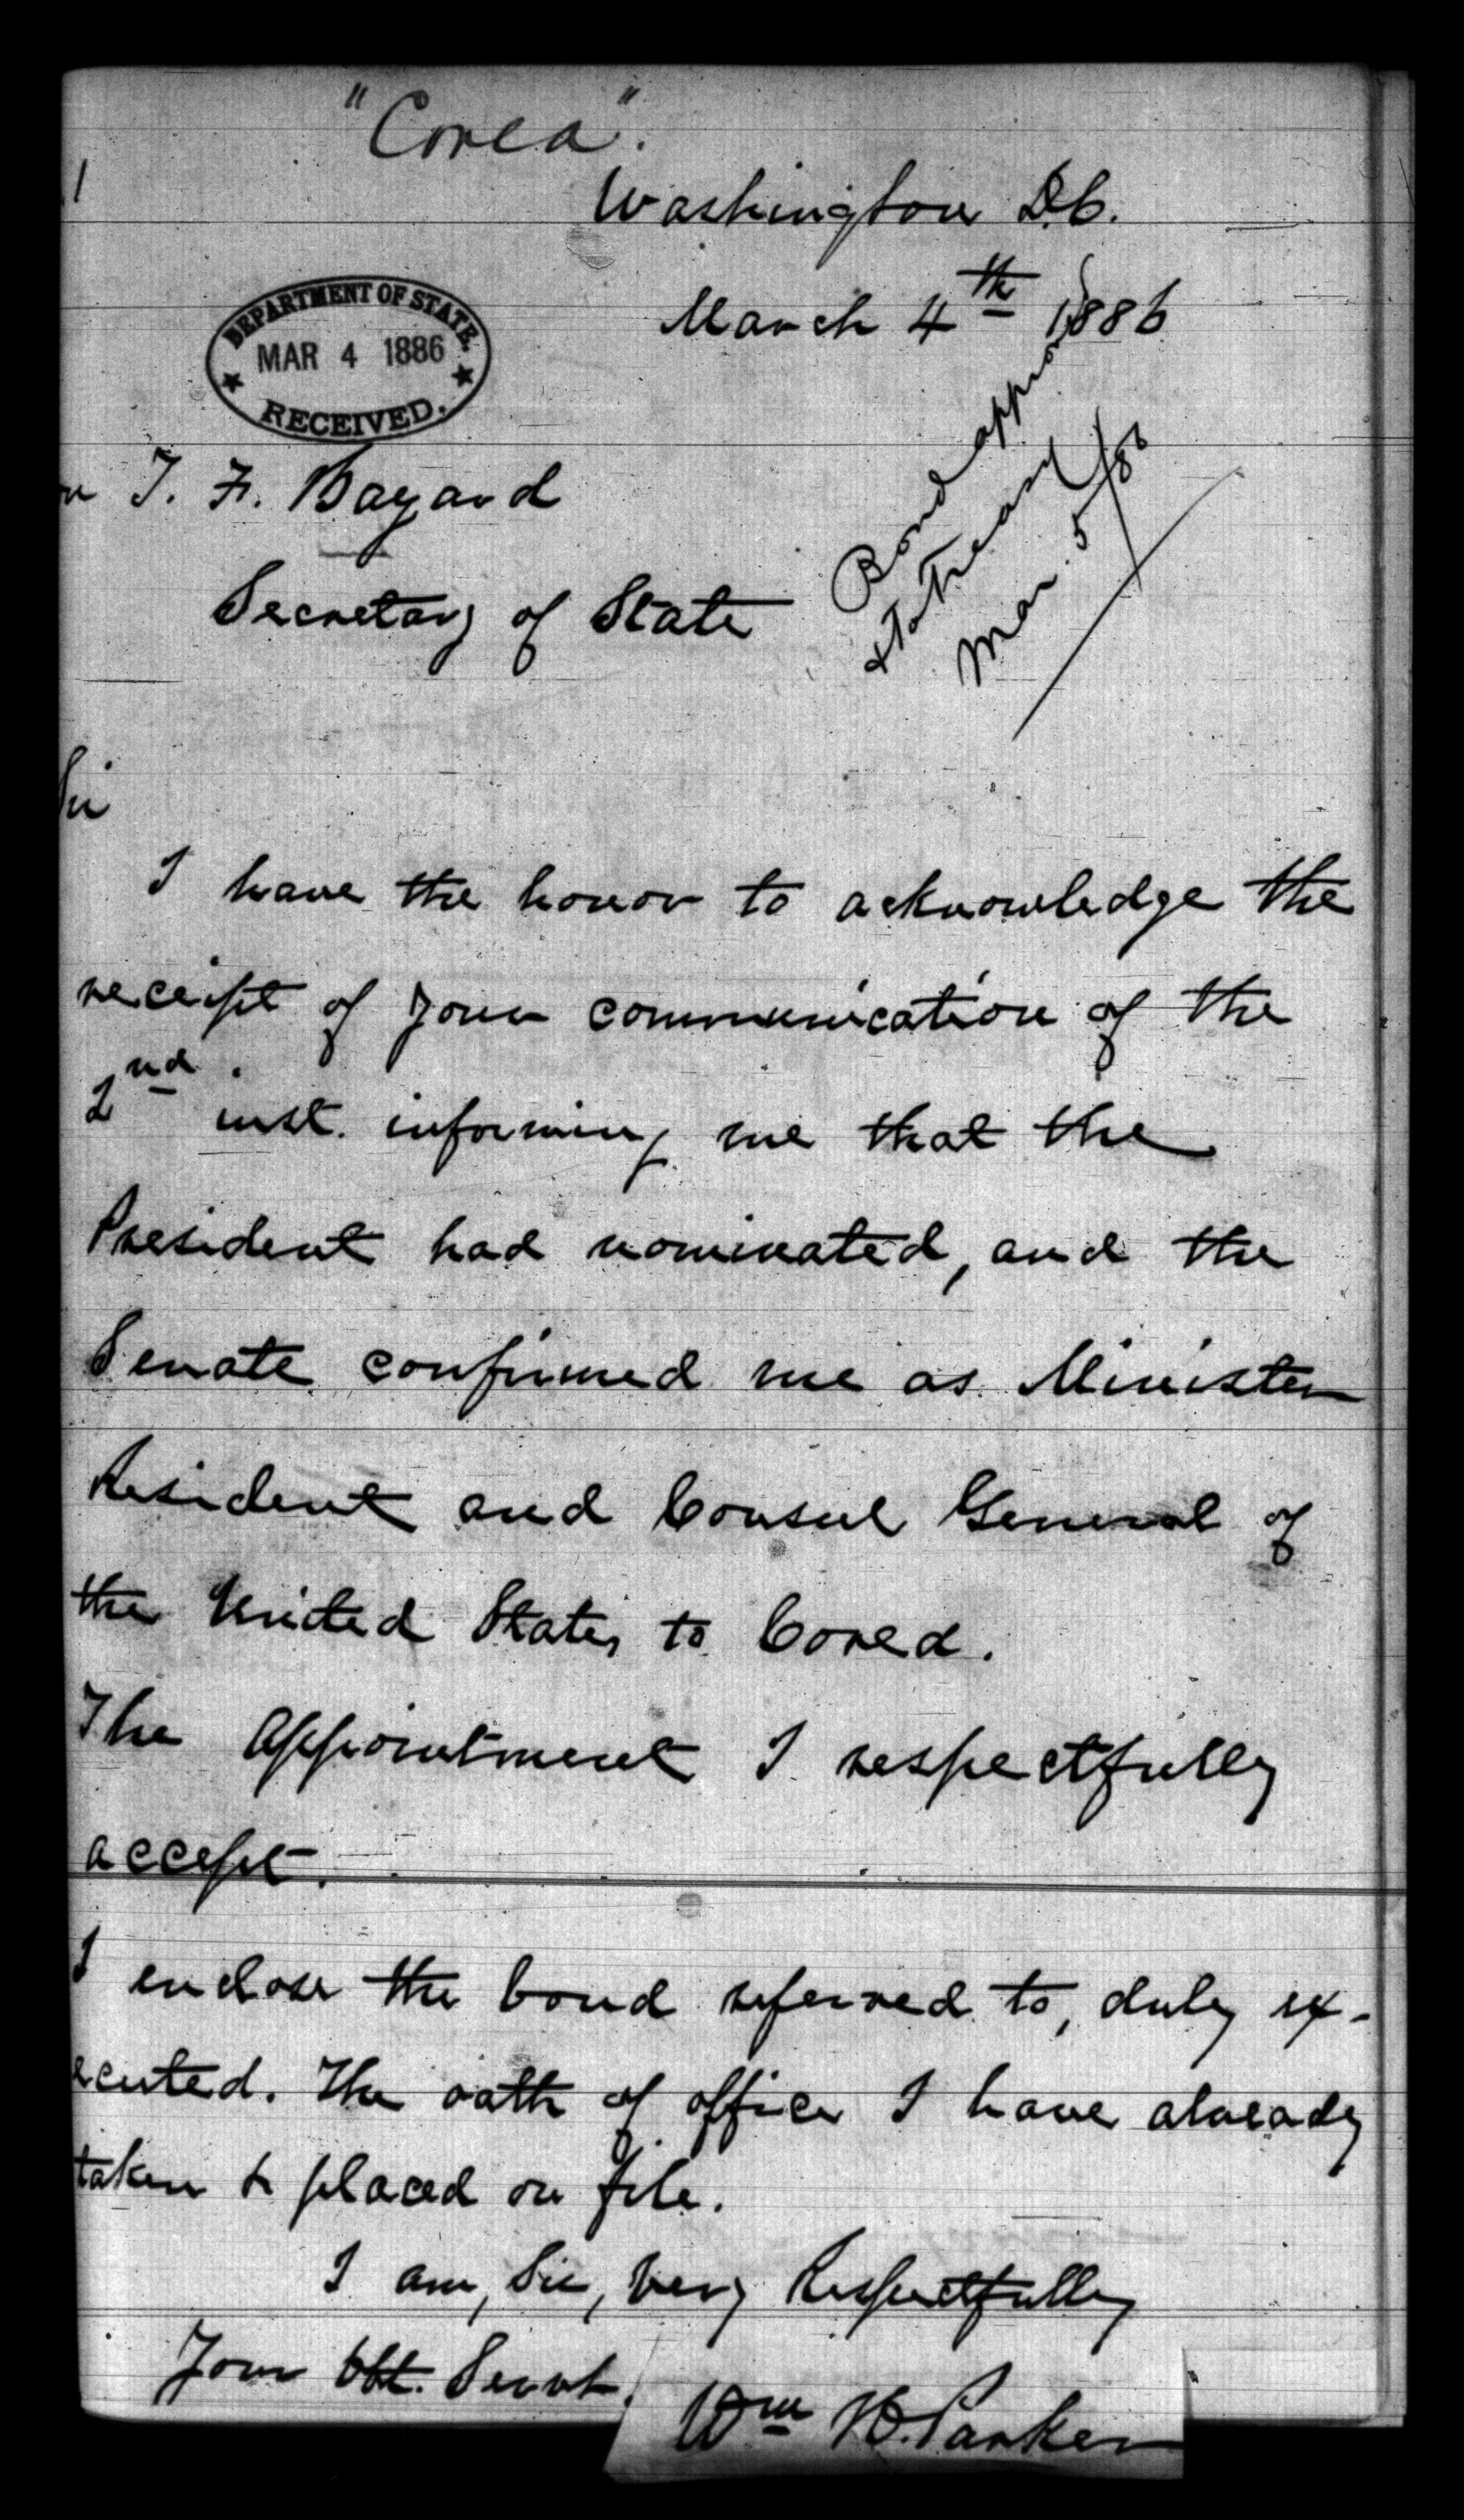 "Corea".
Washington D.C.
March 4th 1886
DEPARTMENT OF STATE.
MAR 4 1886
RECEIVED.
T. F. Bayard
Secretary of State
Bond approv
& to Treasy
Mar. 5/86
Sir
I have the honor to acknowledge the
receipt of your communication of the
2nd inst. informing me that the
President had nominated, and the
Senate confirmed me as Minister
Resident and Consul General of
the United States to Corea.
The appointment I respectfully
accept.
I enclose the bond referred to, duly ex-
ecuted. The oath of office I have already
taken & placed on file.
I am, Sir, very Respectfully
Your Obt. Servt.
Wm H. Parker